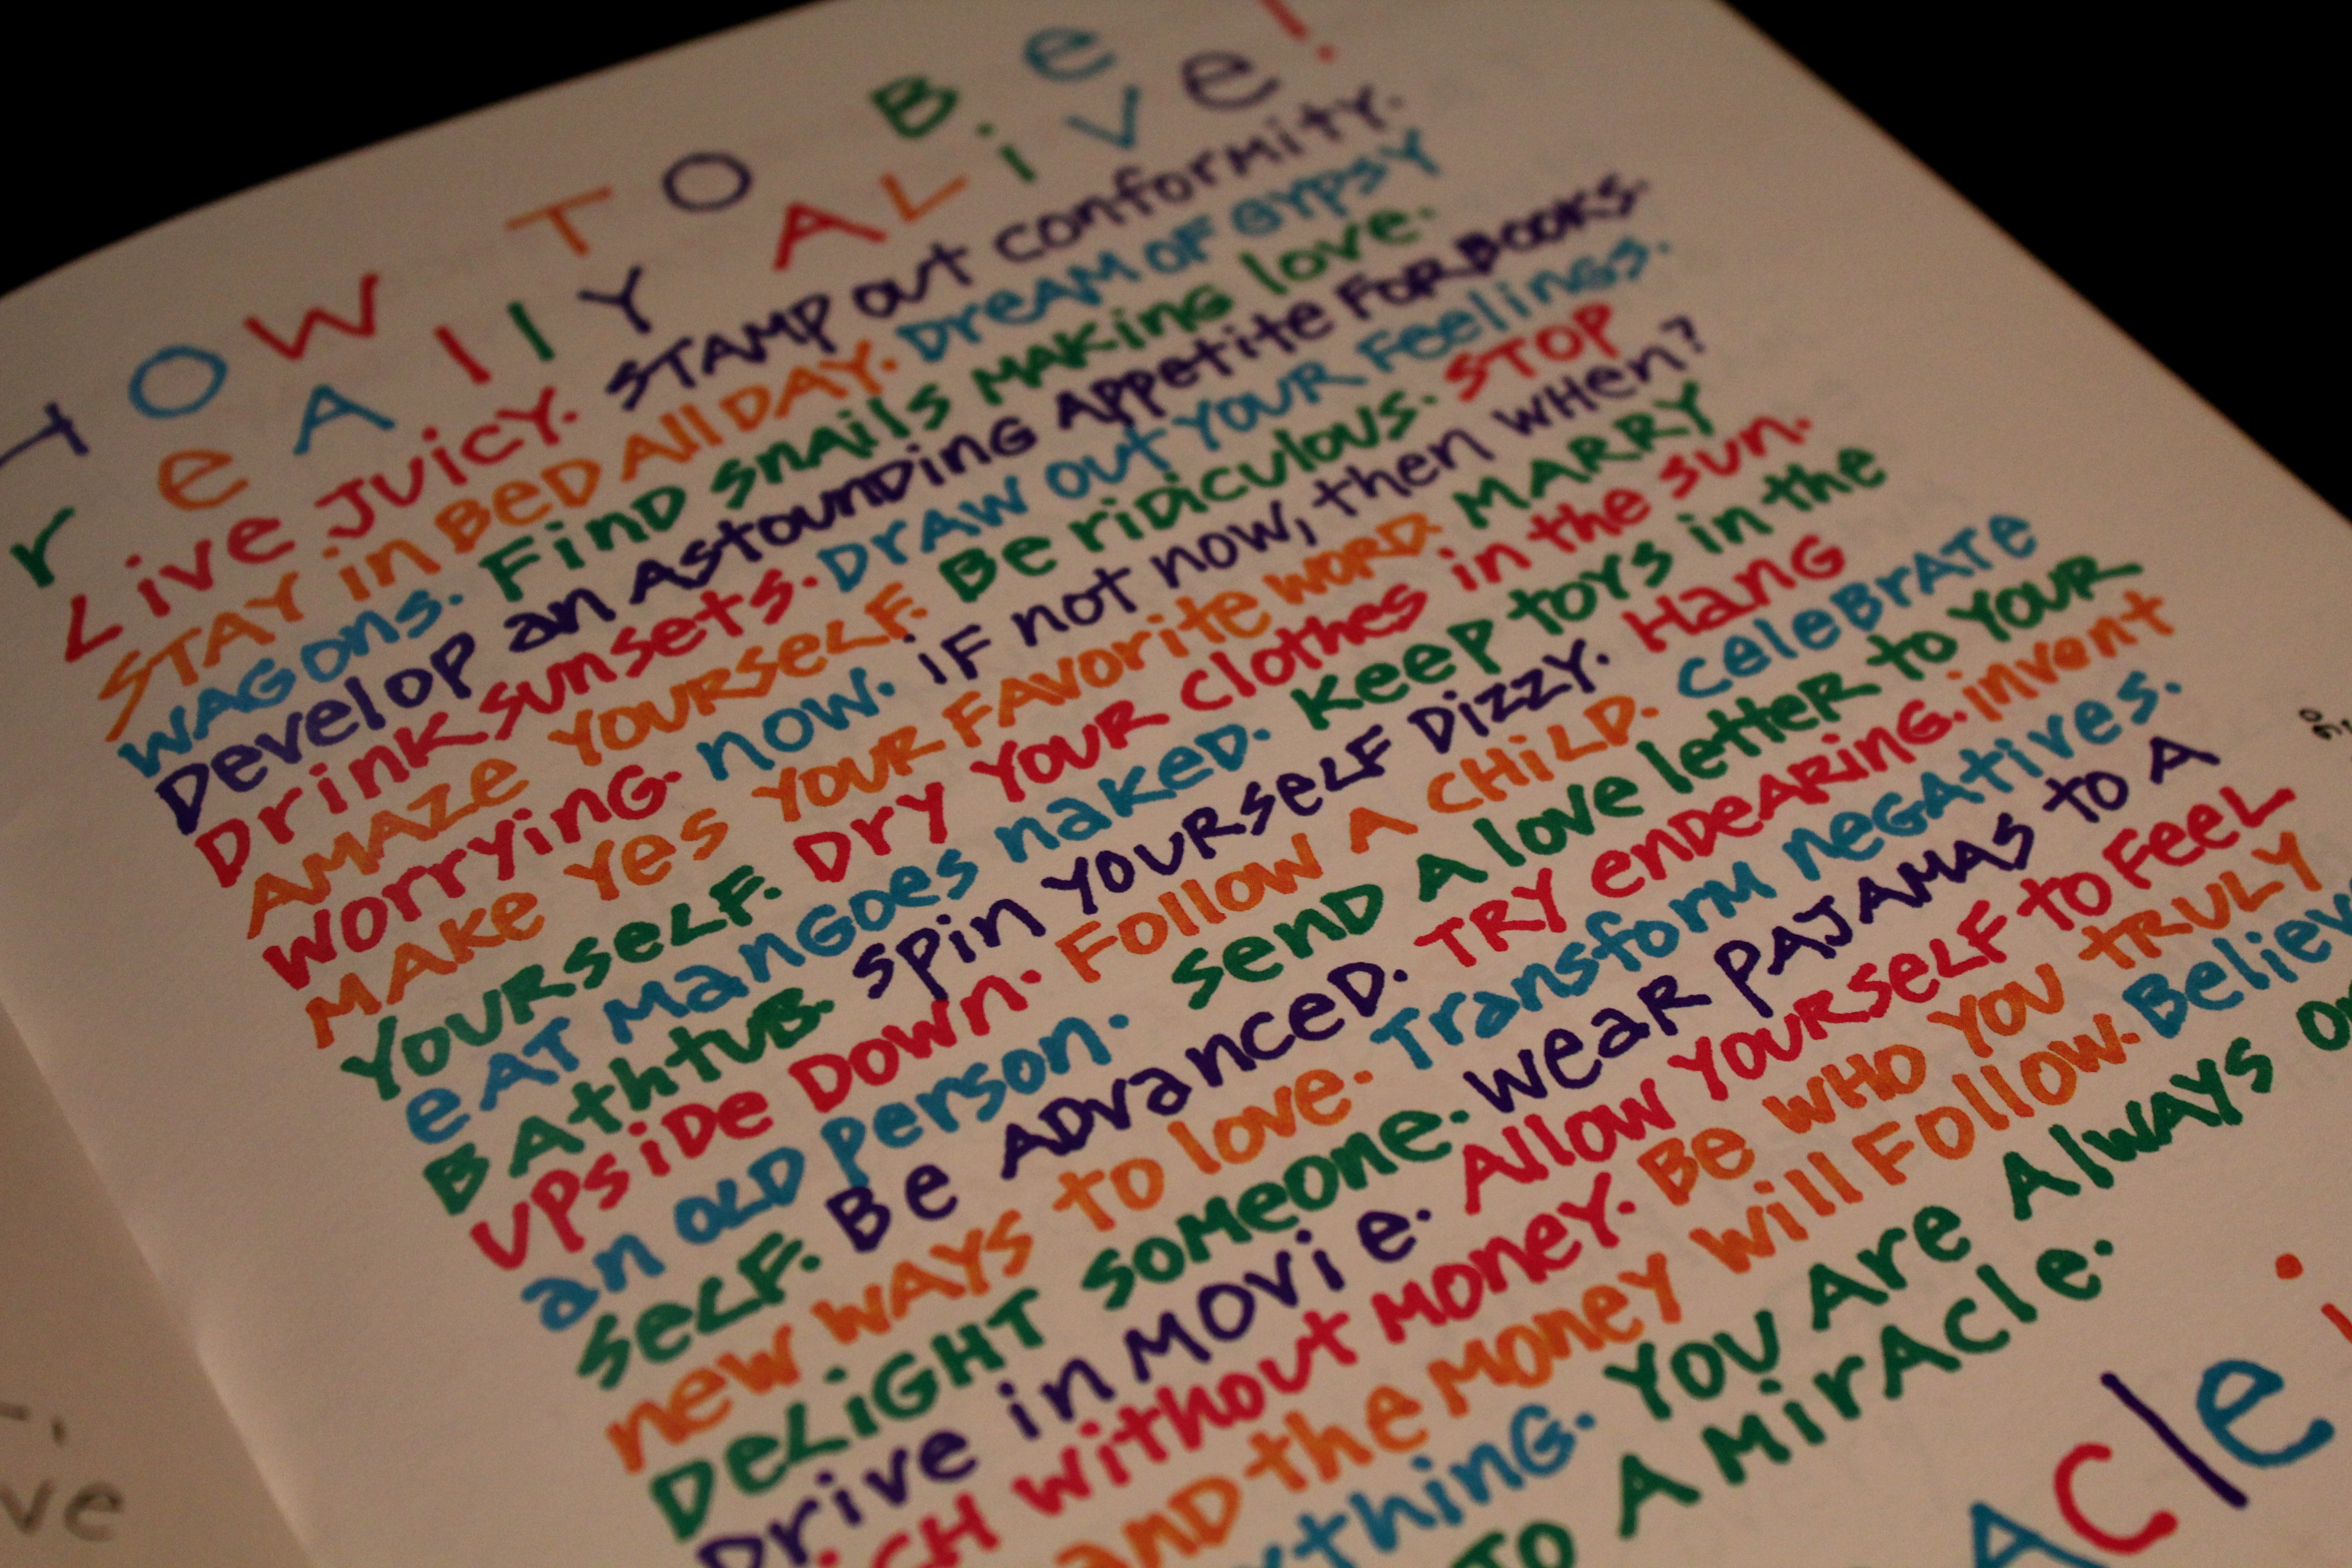 HOW TO Be
reAllY ALive!
Live juicy. STAMP out conformity.
STAY in BeD All DAY. DreAM OF GYPSY
WAGons. FinD snails MAKing love.
Develop an AstounDing Appetite For BOOKS.
Drink sunsets. DrAW out YOUR Feelings.
AMAZe YOURSeLF. Be riDiculous. STOP
WorrYing. now. iF not now, then WHen?
MAKe Yes YOUR FAVorite worD. MARRY
YOURseLF. DrY YOUR clothes in the sun.
eAT MAnGoes naKeD. Keep toYs in the
BAthtuB. spin YOURseLF DizzY. HanG
UPsiDe Down. Follow A CHiLD. celeBrATe
an OLD person. senD A love letteR to YOUR
seLF. Be ADvanceD. TRY enDeARinG. invent
new wAYs to love. Transform neGAtives.
DeLiGHT soMeone. weaR PAJAMAS to A
Drive in MOVie. Allow YOURseLF to FeeL
iCH without Money. Be WHO YOU tRULY
and the Money will Follow. Believ
ything. You Are AlwAYs
TO A MirAcle.
Acle
ve